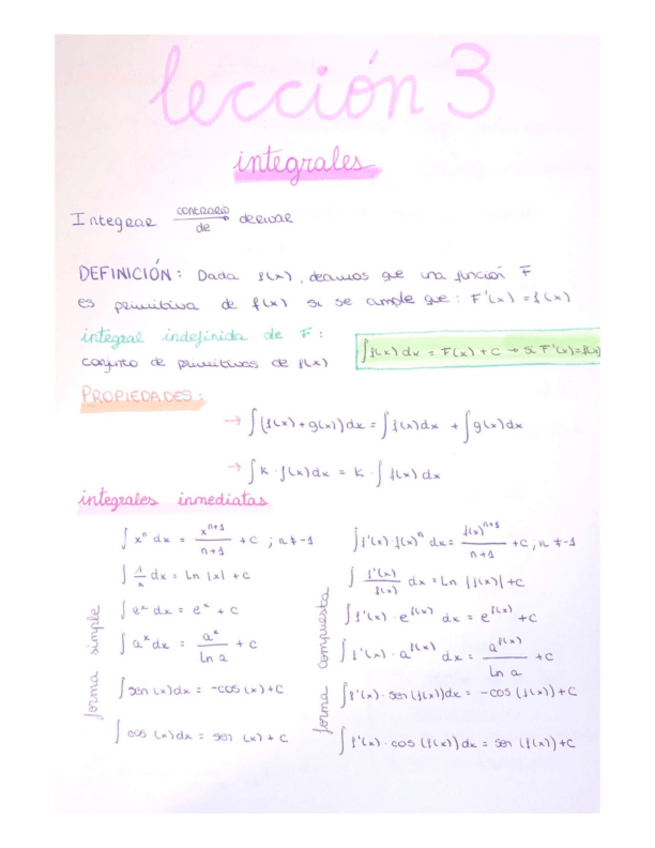 lección 3
integrales
Integrar contrario de → derivar
DEFINICIÓN: Dada f(x), decimos que una función F
es primitiva de f(x) si se cumple que: F'(x) = f(x)
integral indefinida de F:
conjunto de primitivas de f(x)
∫f(x) dx = F(x) + C → si F'(x)=f(x)
PROPIEDADES:
→ ∫(f(x) + g(x)) dx = ∫f(x) dx + ∫g(x) dx
→ ∫K · f(x) dx = K · ∫f(x) dx
integrales inmediatas
forma simple
∫x^n dx = x^(n+1)/(n+1) + C ; n ≠ -1
∫1/x dx = Ln |x| + C
∫e^x dx = e^x + C
∫a^x dx = a^x/Ln a + C
∫sen (x) dx = -cos (x) + C
∫cos (x) dx = sen (x) + C
forma compuesta
∫f'(x) · f(x)^n dx = f(x)^(n+1)/(n+1) + C, n ≠ -1
∫f'(x)/f(x) dx = Ln |f(x)| + C
∫f'(x) · e^f(x) dx = e^f(x) + C
∫f'(x) · a^f(x) dx = a^f(x)/Ln a + C
∫f'(x) · sen (f(x)) dx = -cos (f(x)) + C
∫f'(x) · cos (f(x)) dx = sen (f(x)) + C